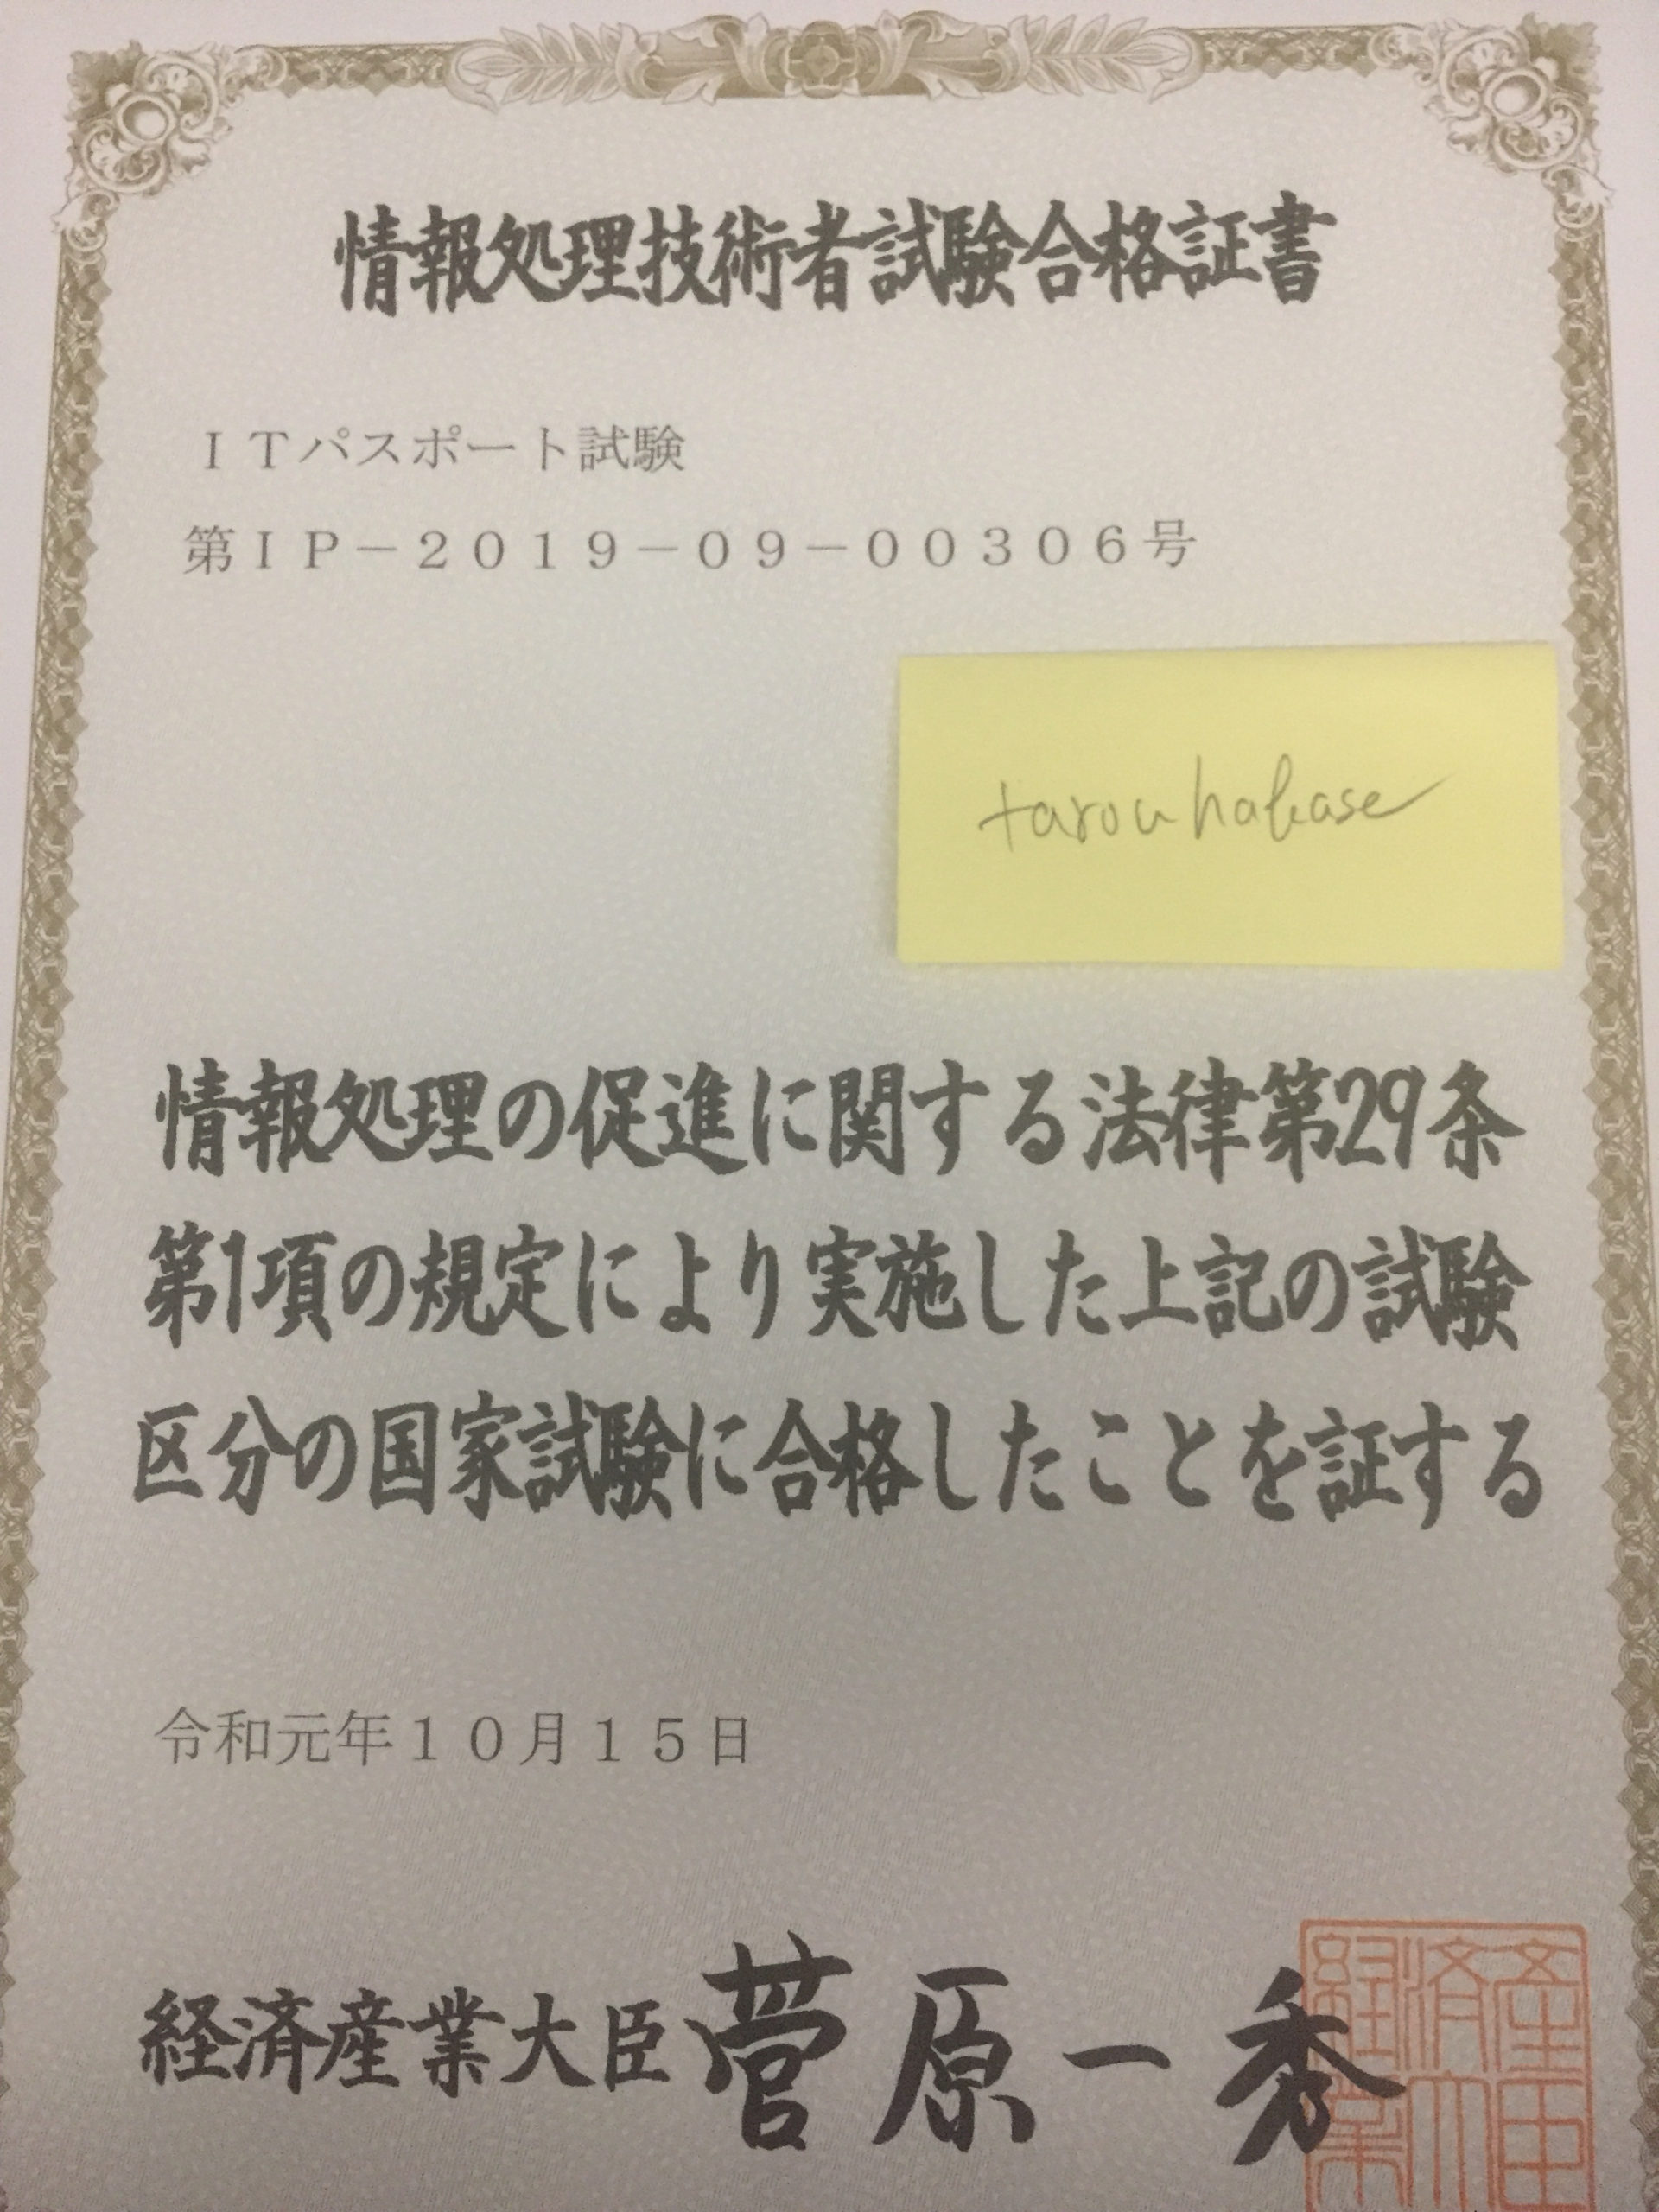 情報処理技術者試験合格証書
ITパスポート試験
第IP-2019-09-00306号
tarouhakase
情報処理の促進に関する法律第29条
第1項の規定により実施した上記の試験
区分の国家試験に合格したことを証する
令和元年10月15日
経済産業大臣 菅原一秀